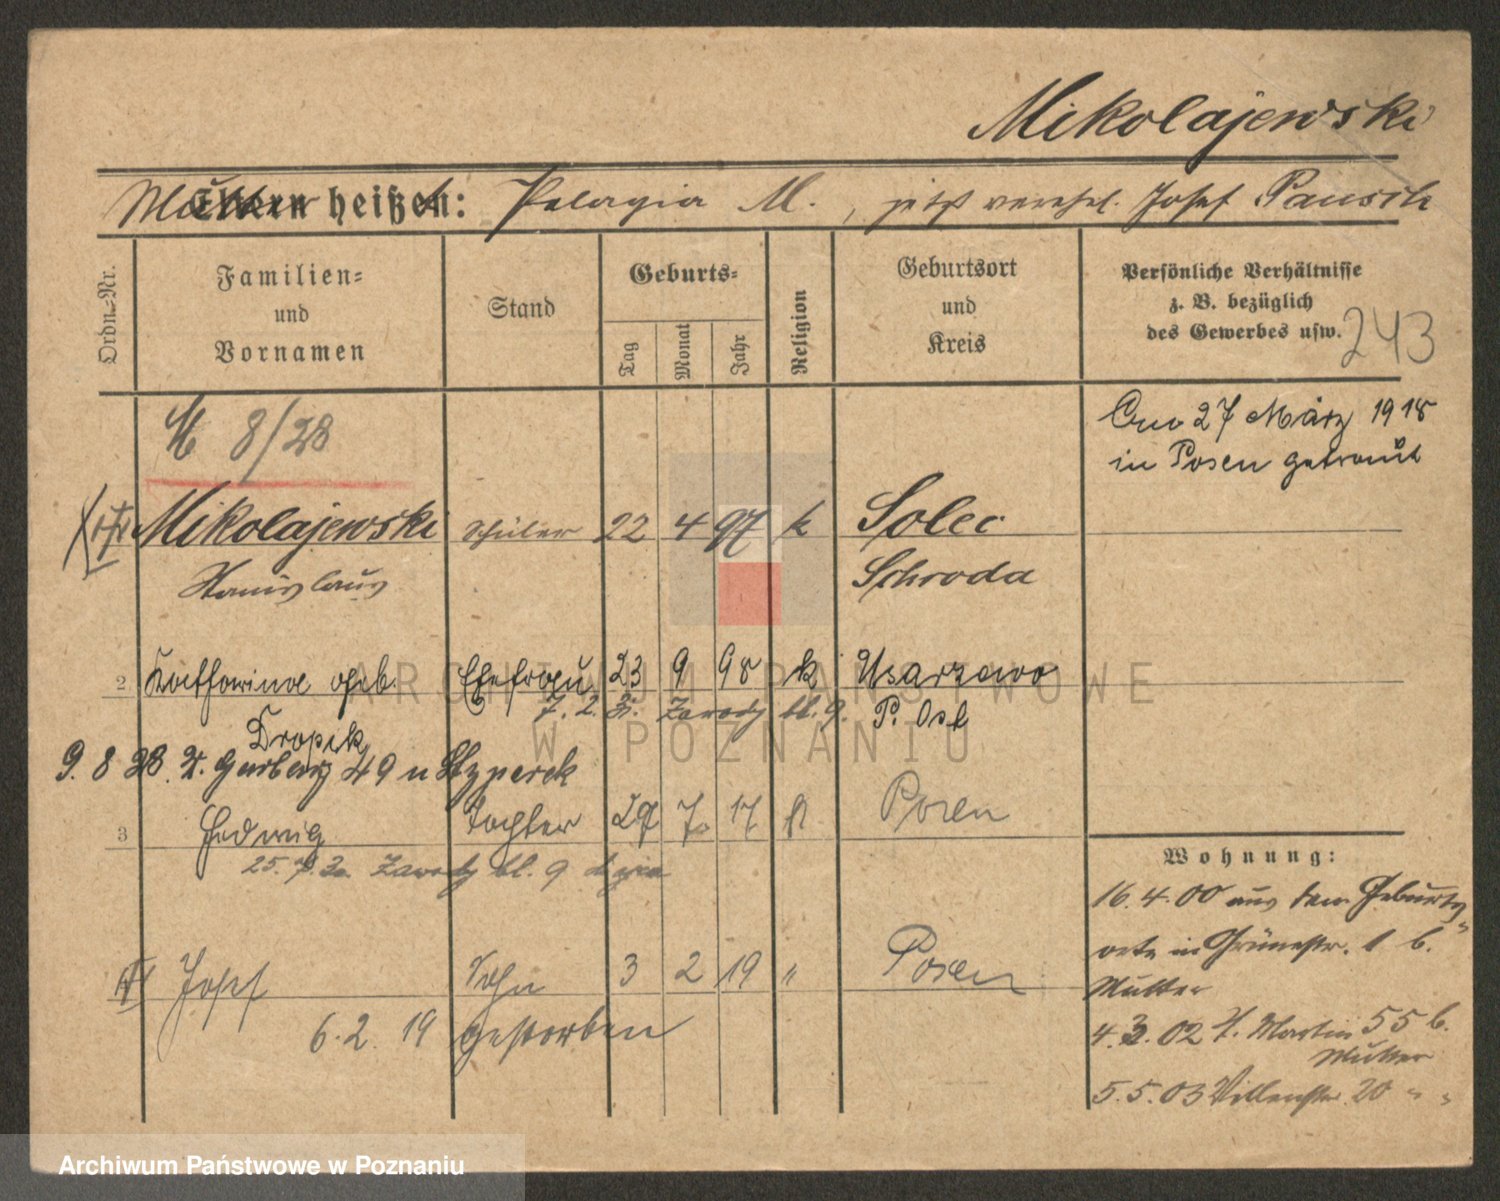 Mikolajewski
Mutter heißt: Pelagia M., jetzt verehel. Josef Pausch
Ordn.-Nr.
Familien-
und
Vornamen
Stand
Geburts-
Tag
Monat
Jahr
Religion
Geburtsort
und
Kreis
Persönliche Verhältnisse
z. B. bezüglich
des Gewerbes usw.
243
8/28
Am 27 März 1918
in Posen getraut
Mikolajewski Schüler 22 4 97 k Solec
Stanislaus Schroda
2 Katharina geb. Ehefrau 23 9 98 k Usarzewo
7. 2. Zawady bl. 9. P. Ost
Dropik
9. 8 28. Garbary 49
3 Hedwig Tochter 29 7 17 k Posen
25. 7. 30 Zawady bl. 9
Josef Sohn 3 2 19 " Posen
6. 2. 19 gestorben
Wohnung:
16. 4. 00 aus dem Geburts-
orte in Grünestr. 1 b.
Mutter
4. 3. 02 St. Martin 55 b.
Mutter
5. 5. 03 Villenstr. 20 " "
ARCHIWUM PAŃSTWOWE
W POZNANIU
Archiwum Państwowe w Poznaniu